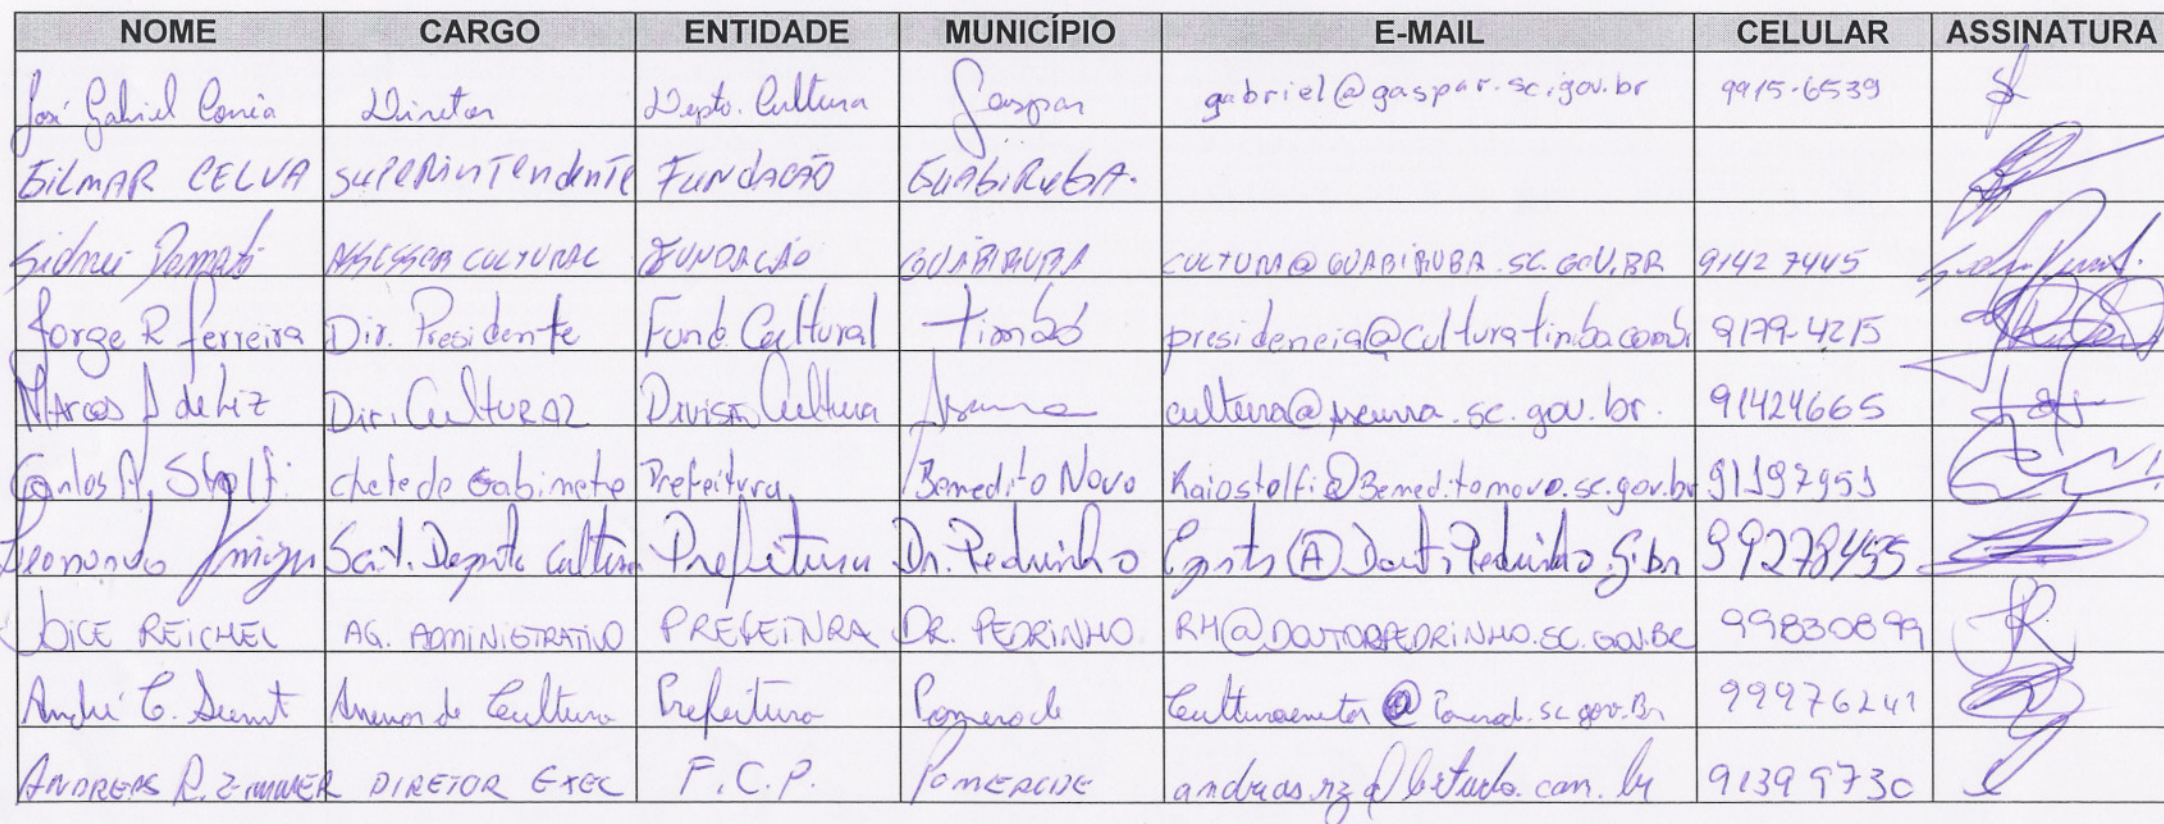 NOME CARGO ENTIDADE MUNICÍPIO E-MAIL CELULAR ASSINATURA
José Gabriel Correia Diretor Depto. Cultura Gaspar gabriel@gaspar.sc.gov.br 9915-6539
GILMAR CELVA SUPERINTENDENTE FUNDAÇÃO GUABIRUBA.
Sidnei Dematé ASSESSOR CULTURAL FUNDAÇÃO GUABIRUBA CULTURA@GUABIRUBA.SC.GOV.BR 91427445
Jorge R Ferreira Dir. Presidente Fund. Cultural Timbó 9179-4215
Marcos A de Liz Dir. CULTURAL Divisão Cultura Ascurra cultura@ascurra.sc.gov.br. 91424665
Carlos A. Stolf. chefe de Gabinete Prefeitura Benedito Novo Kaiostolfi@Beneditonovo.sc.gov.br 91197951
Cultura Prefeitura Dr. Pedrinho
JOICE REICHEL AG. ADMINISTRATIVO PREFEITURA DR. PEDRINHO RH@DOUTORPEDRINHO.SC.GOV.BR 99830899
André C. de Cultura Prefeitura Pomerode 99976241
ANDREAS R. ZIMMER DIRETOR EXEC F.C.P. POMERODE 91399730